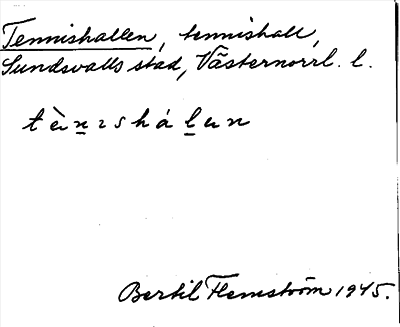 Tennishallen, tennishall,
Sundsvalls stad, Västernorrl. l.
tὲn̲ıshálun
Bertil Flemström 1945.